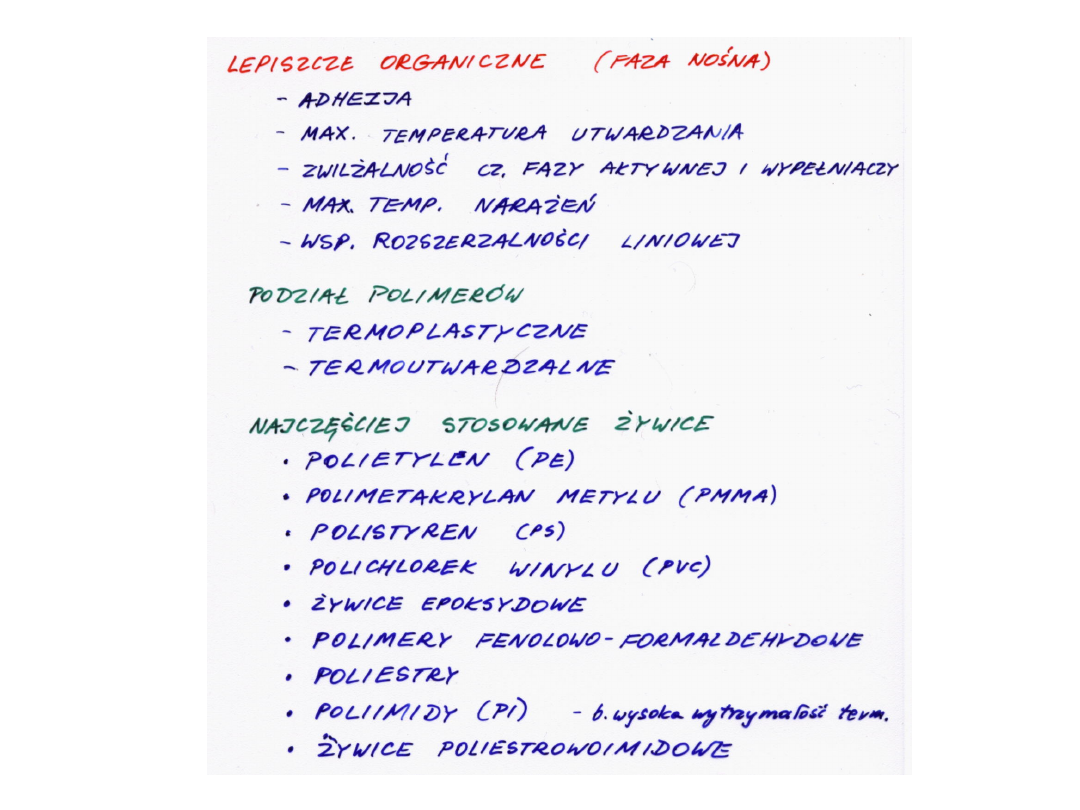 LEPISZCZE ORGANICZNE (FAZA NOŚNA)
- ADHEZJA
- MAX. TEMPERATURA UTWARDZANIA
- ZWILŻALNOŚĆ CZ. FAZY AKTYWNEJ I WYPEŁNIACZY
- MAX. TEMP. NARAŻEŃ
- WSP. ROZSZERZALNOŚCI LINIOWEJ
PODZIAŁ POLIMERÓW
- TERMOPLASTYCZNE
- TERMOUTWARDZALNE
NAJCZĘŚCIEJ STOSOWANE ŻYWICE
• POLIETYLEN (PE)
• POLIMETAKRYLAN METYLU (PMMA)
• POLISTYREN (PS)
• POLICHLOREK WINYLU (PVC)
• ŻYWICE EPOKSYDOWE
• POLIMERY FENOLOWO-FORMALDEHYDOWE
• POLIESTRY
• POLIIMIDY (PI) - b. wysoka wytrzymałość term.
• ŻYWICE POLIESTROWOIMIDOWE